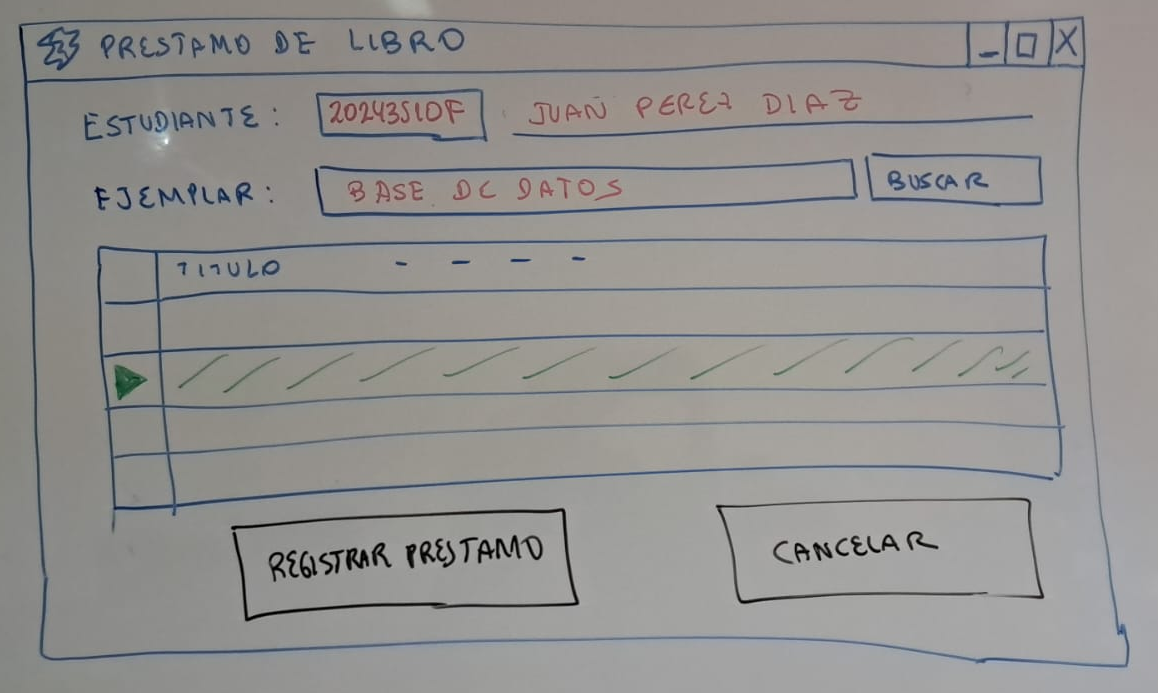 PRESTAMO DE LIBRO _ □ X
ESTUDIANTE: 20243510F JUAN PEREZ DIAZ
EJEMPLAR: BASE DE DATOS BUSCAR
TITULO - - - -
REGISTRAR PRESTAMO CANCELAR